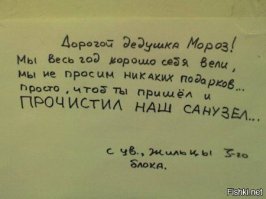 Дорогой дедушка Мороз!
Мы весь год хорошо себя вели,
мы не просим никаких подарков...
просто, чтоб ты пришёл и
ПРОЧИСТИЛ НАШ САНУЗЕЛ...
с ув., жильцы 3-го
блока.
Fishki.net